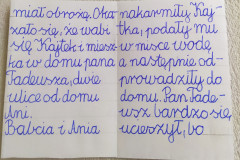 miał obrożę. Oka
zało się, że wabi
się Kajtek i miesz
ka w domu pana
Tadeusza, dwie
ulice od domu
Ani.
Babcia i Ania
nakarmiły Kaj
tka, podały mu
w misce wodę
a następnie od-
prowadziły do
domu. Pan Tade-
usz bardzo się
ucieszył, bo